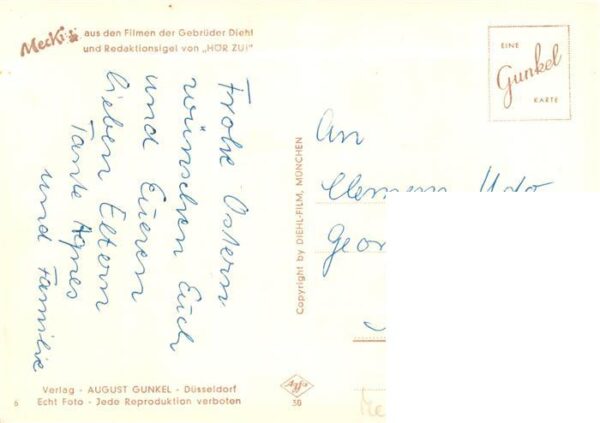 Mecki aus den Filmen der Gebrüder Diehl
und Redaktionsigel von „HÖR ZU!"
EINE
Gunkel
KARTE
Frohe Ostern
wünschen Euch
und Eueren
lieben Eltern
Tante Agnes
und Familie
Copyright by DIEHL-FILM, MÜNCHEN
An
Clemens Udo
Geor
Verlag - AUGUST GUNKEL - Düsseldorf
Echt Foto - Jede Reproduktion verboten
6
Agfa
38